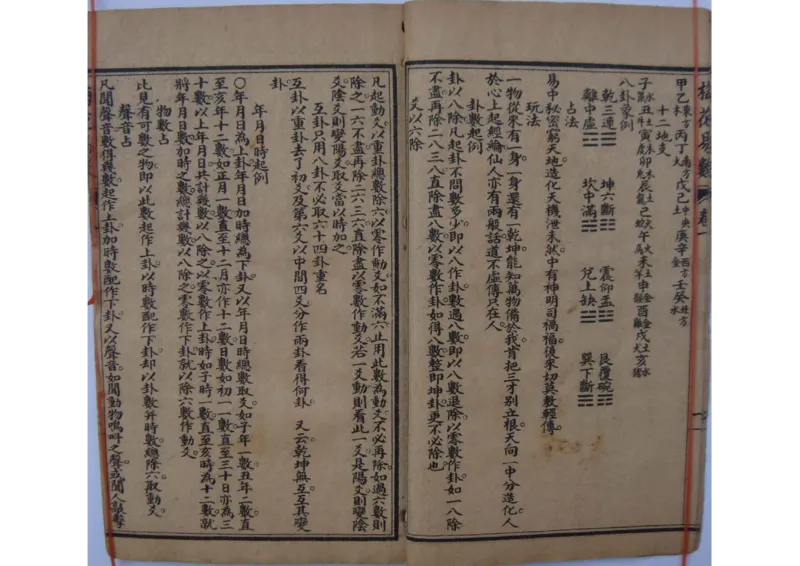 梅花易數 卷一
甲乙東方木丙丁南方火戊己土中央庚辛西方金壬癸北方水
十二地支
子水鼠丑土牛寅木虎卯木兔辰土龍巳火蛇午火馬未土羊申金猴酉金雞戌土犬亥水豬
八卦象例
乾三連☰ 坤六斷☷ 震仰盂☳ 艮覆碗☶
離中虛☲ 坎中滿☵ 兌上缺☱ 巽下斷☴
占法
易中秘密窮天地造化天機泄未然中有神明司禍福後來切莫教輕傳
玩法
一物從來有一身一身還有一乾坤能知萬物備於我肯把三才別立根天向一中分造化人
於心上起經綸仙人亦有兩般話道不虛傳只在人
卦數起例
卦以八除凡起卦不問數多少即以八作卦數過八數即以八數退除以零數作卦如一八除
不盡再除二八三八直除盡八數以零數作卦如得八數整即坤卦更不必除也
爻以六除
凡起動爻以重卦總數除六以零作動爻如不滿六止用此數為動爻不必再除如過六數則
除之一六不盡再除二六三六直除盡以零數作動爻若一爻動則看此一爻是陽爻則變陰
爻陰爻則變陽爻取爻當以時加之
互卦只用八卦不必取六十四卦重名
互卦以重卦去了初爻及第六爻以中間四爻分作兩卦看得何卦 又云乾坤無互互其變
卦
年月日時起例
〇年月日為上卦年月日加時總為下卦又以年月日時總數取爻如子年一數丑年二數直
至亥年十二數如正月一數直至十二月亦作十二數日數如初一一數直至三十日亦為三
十數以上年月日共計幾數以八除之以零數作上卦時如子時一數直至亥時為十二數就
將年月日數加時之數總計幾數以八除之零數作下卦就以除六數作動爻
物數占
此見有可數之物即以此數起作上卦以時數配作下卦却以卦數并時數總除六取動爻
聲音占
凡聞聲音數得幾數起作上卦加時數配作下卦又以聲音如聞動物鳴叫之聲或聞人敲擊